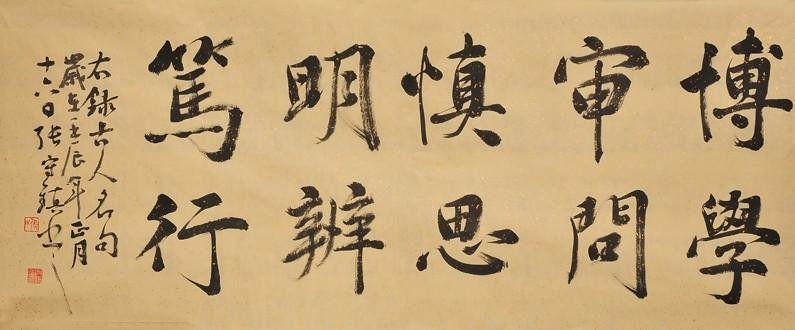 博學
审問
慎思
明辨
篤行
右録古人名句
歲在壬辰年正月
十六日张守鎮书